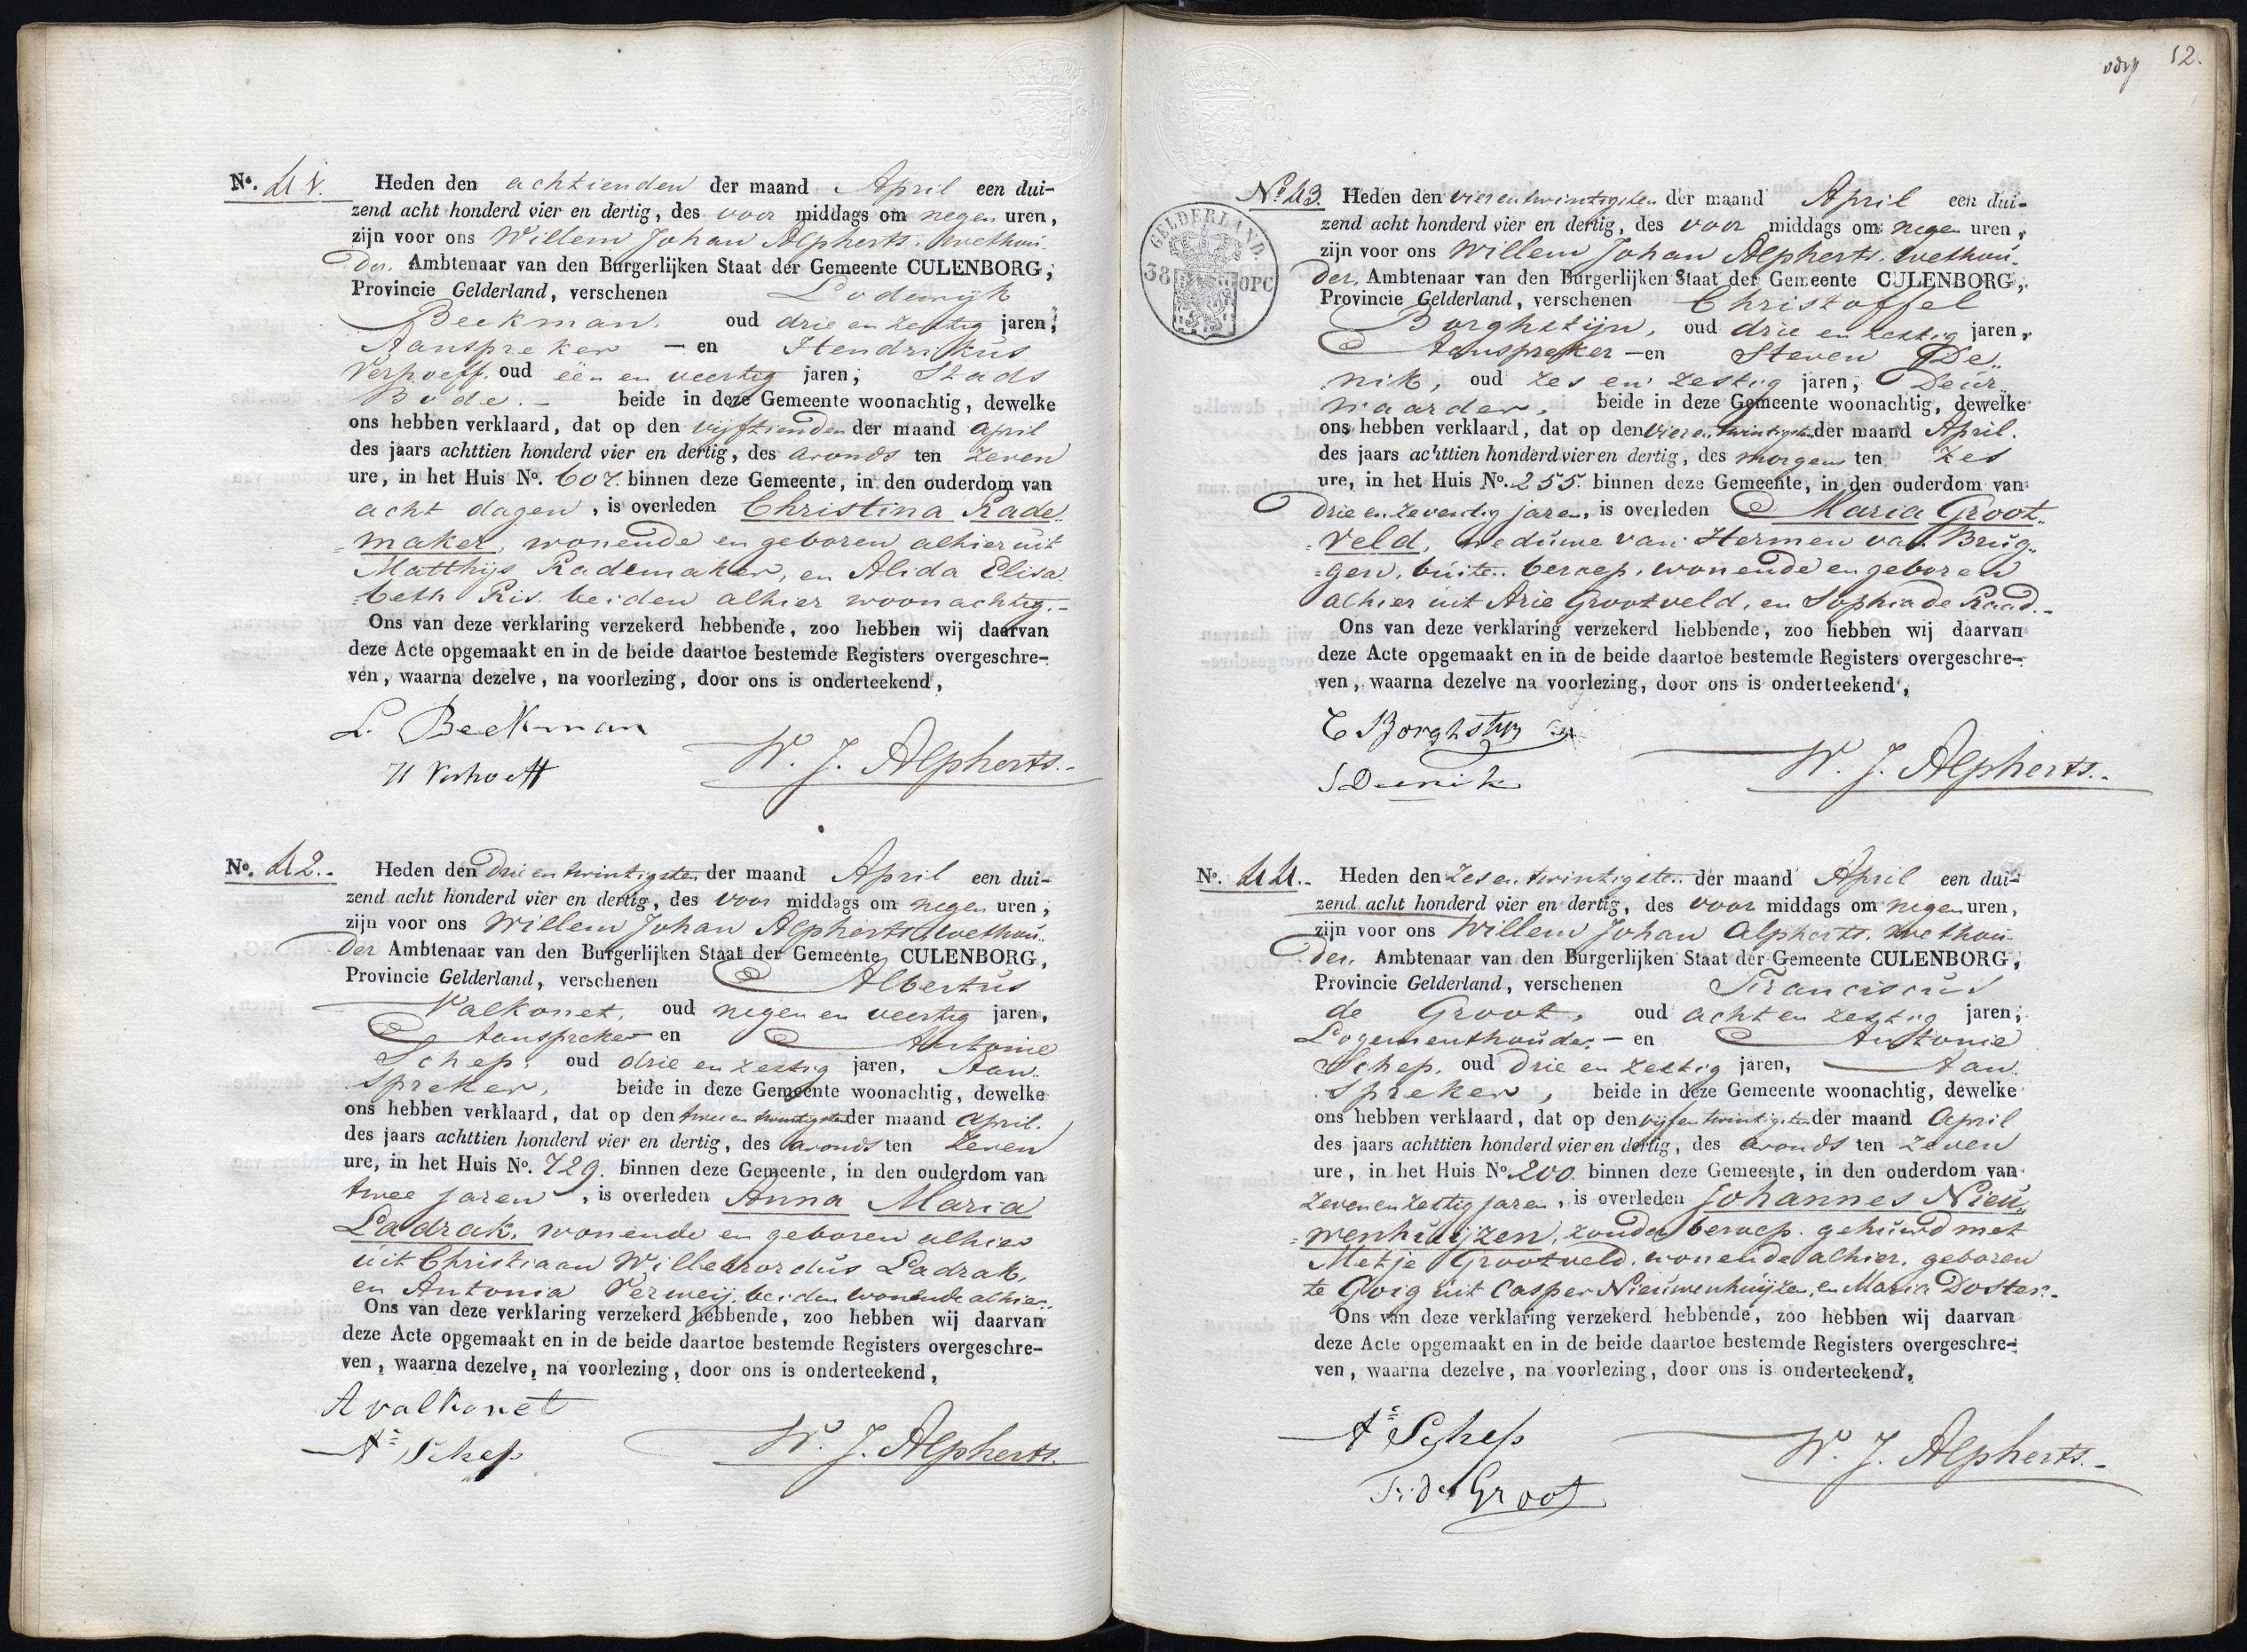 N°. 41. Heden den achtienden der maand April een dui-
zend acht honderd vier en dertig, des voor middags om negen uren,
zijn voor ons Willem Johan Alpherts, wethou-
der, Ambtenaar van den Burgerlijken Staat der Gemeente CULENBORG,
Provincie Gelderland, verschenen Lodewijk
Beekman. oud drie en zestig jaren,
Aanspreker — en Hendrikus
Verhoeff. oud één en veertig jaren, Stads
Bode. - beide in deze Gemeente woonachtig, dewelke
ons hebben verklaard, dat op den vijftienden der maand April
des jaars achttien honderd vier en dertig, des avonds ten zeven
ure, in het Huis N°. 607. binnen deze Gemeente, in den ouderdom van
acht dagen, is overleden Christina Rade„
„maker, wonende en geboren alhier uit
Matthijs Rademaker, en Alida Elisa„
„beth Ris. beiden alhier woonachtig. -
Ons van deze verklaring verzekerd hebbende, zoo hebben wij daarvan
deze Acte opgemaakt en in de beide daartoe bestemde Registers overgeschre-
ven, waarna dezelve, na voorlezing, door ons is onderteekend,
L. Beekman
H Verhoeff
W. J. Alpherts. -
N°. 42. - Heden den drie en twintigsten der maand April een dui-
zend acht honderd vier en dertig, des voor middags om negen uren,
zijn voor ons Willem Johan Alpherts, wethou„
der Ambtenaar van den Burgerlijken Staat der Gemeente CULENBORG,
Provincie Gelderland, verschenen Albertus
Valkonet, oud negen en veertig jaren,
Aanspreker — en Antonie
Schep, oud drie en zestig jaren, Aan„
spreker, beide in deze Gemeente woonachtig, dewelke
ons hebben verklaard, dat op den twee en twintigsten der maand April.
des jaars achttien honderd vier en dertig, des avonds ten zeven
ure, in het Huis N°. 729. binnen deze Gemeente, in den ouderdom van
twee jaren, is overleden Anna Maria
Ladrak, wonende en geboren alhier
uit Christiaan Willebrordus Ladrak,
en Antonia Verweij. beiden wonende alhier.
Ons van deze verklaring verzekerd hebbende, zoo hebben wij daarvan
deze Acte opgemaakt en in de beide daartoe bestemde Registers overgeschre-
ven, waarna dezelve, na voorlezing, door ons is onderteekend,
A valkonet
A= Schep
W. J. Alpherts.
12.
GELDERLAND.
38 OPC
N° 43. Heden den vier en twintigsten der maand April een dui-
zend acht honderd vier en dertig, des voor middags om negen uren,
zijn voor ons Willem Johan Alpherts, wethou-
der, Ambtenaar van den Burgerlijken Staat der Gemeente CULENBORG,
Provincie Gelderland, verschenen Christoffel
Borghstijn, oud drie en zestig jaren,
Aanspreker — en Steven De„
nik, oud zes en zestig jaren, Deur„
waarder, beide in deze Gemeente woonachtig, dewelke
ons hebben verklaard, dat op den vier en twintigsten der maand April.
des jaars achttien honderd vier en dertig, des morgens ten zes
ure, in het Huis N°. 255. binnen deze Gemeente, in den ouderdom van
drie en zeventig jaren, is overleden Maria Groot„
„veld, weduwe van Hermen van Brug„
„gen, buiten beroep, wonende en geboren
alhier uit Arie Grootveld, en Sophia de Raad. -
Ons van deze verklaring verzekerd hebbende, zoo hebben wij daarvan
deze Acte opgemaakt en in de beide daartoe bestemde Registers overgeschre-
ven, waarna dezelve na voorlezing, door ons is onderteekend,
C Borghstijn
S Deenik
W. J. Alpherts. -
N°. 44. - Heden den zes en twintigsten der maand April een dui-
zend acht honderd vier en dertig, des voor middags om negen uren,
zijn voor ons Willem Johan Alpherts, wethou-
der, Ambtenaar van den Burgerlijken Staat der Gemeente CULENBORG,
Provincie Gelderland, verschenen Franciscus
de Groot, oud acht en zestig jaren,
Logementhouder — en Antonie
Schep, oud drie en zestig jaren, Aan„
spreker, beide in deze Gemeente woonachtig, dewelke
ons hebben verklaard, dat op den vijf en twintigsten der maand April
des jaars achttien honderd vier en dertig, des avonds ten zeven
ure, in het Huis N°. 200. binnen deze Gemeente, in den ouderdom van
zeven en zestig jaren, is overleden Johannes Nieu„
„wenhuijzen, zonder beroep. gehuwd met
Metje Grootveld, wonende alhier, geboren
te Goig uit Casper Nieuwenhuijzen, en Maria Doster. -
Ons van deze verklaring verzekerd hebbende, zoo hebben wij daarvan
deze Acte opgemaakt en in de beide daartoe bestemde Registers overgeschre-
ven, waarna dezelve, na voorlezing, door ons is onderteekend,
A= Schep
Fr: de Groot
W. J. Alpherts. -